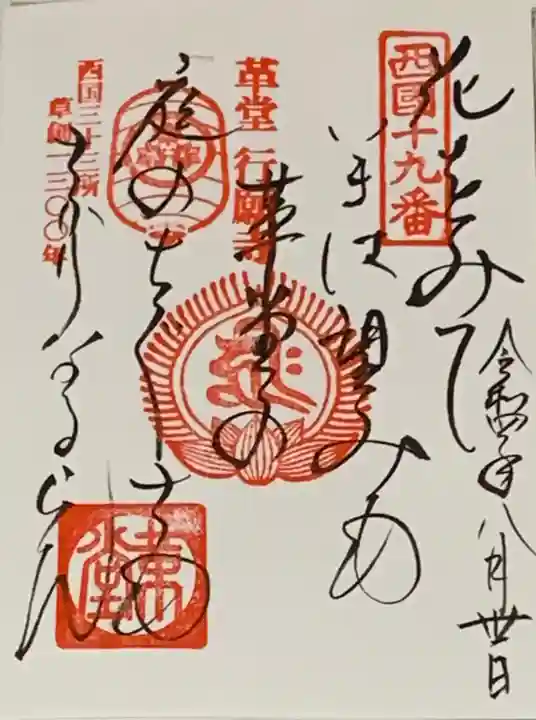 西國十九番
令和四年八月卅日
花をみて
いまは望みも
革堂の
庭のちくさも
さかりなるらん
革堂 行願寺
西国三十三所
草創一三〇〇年
革堂